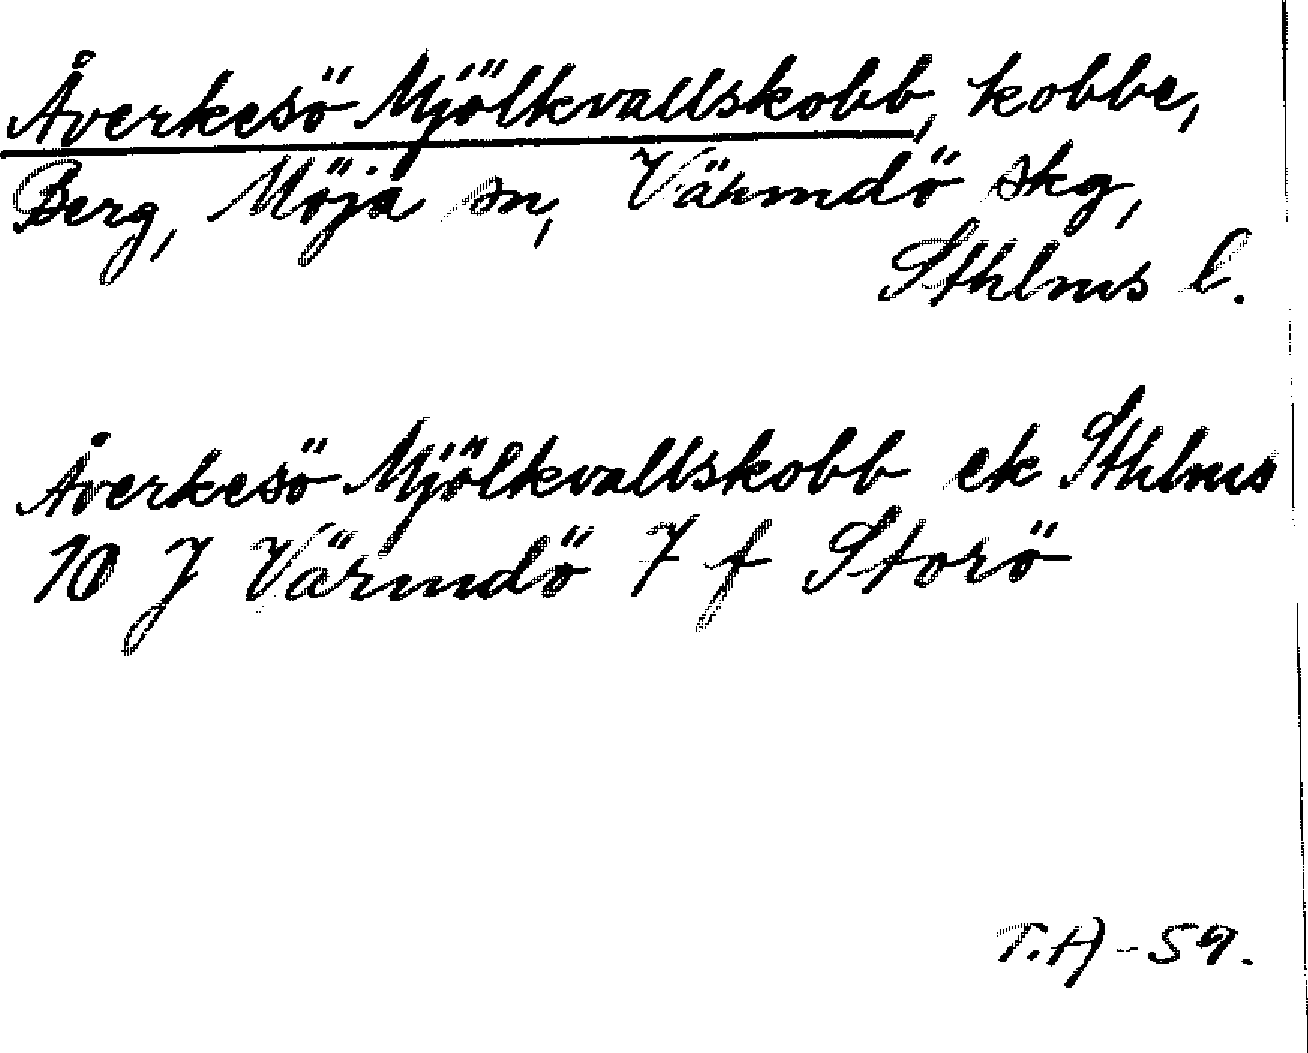 Åverkesö Mjölkvallskobb, kobbe,
Berg, Möja sn, Värmdö skg,
Sthlms l.
Åverkesö Mjölkvallskobb ek Sthlms
10 J Värmdö 7 f Storö
T.A-59.